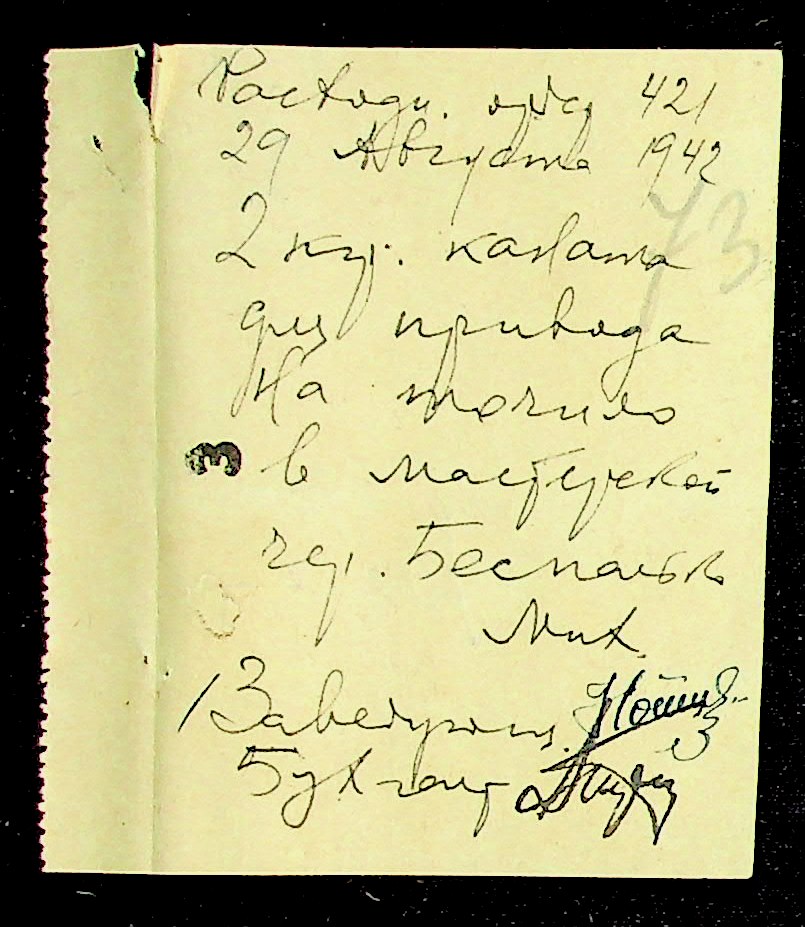 Расходн. орд. 421
29 Августа 1942
73
2 кг. каната
для привода
на точило
в мастерской
3
чер. Беспалов
Мих.
Заведующ.
Бухгалт